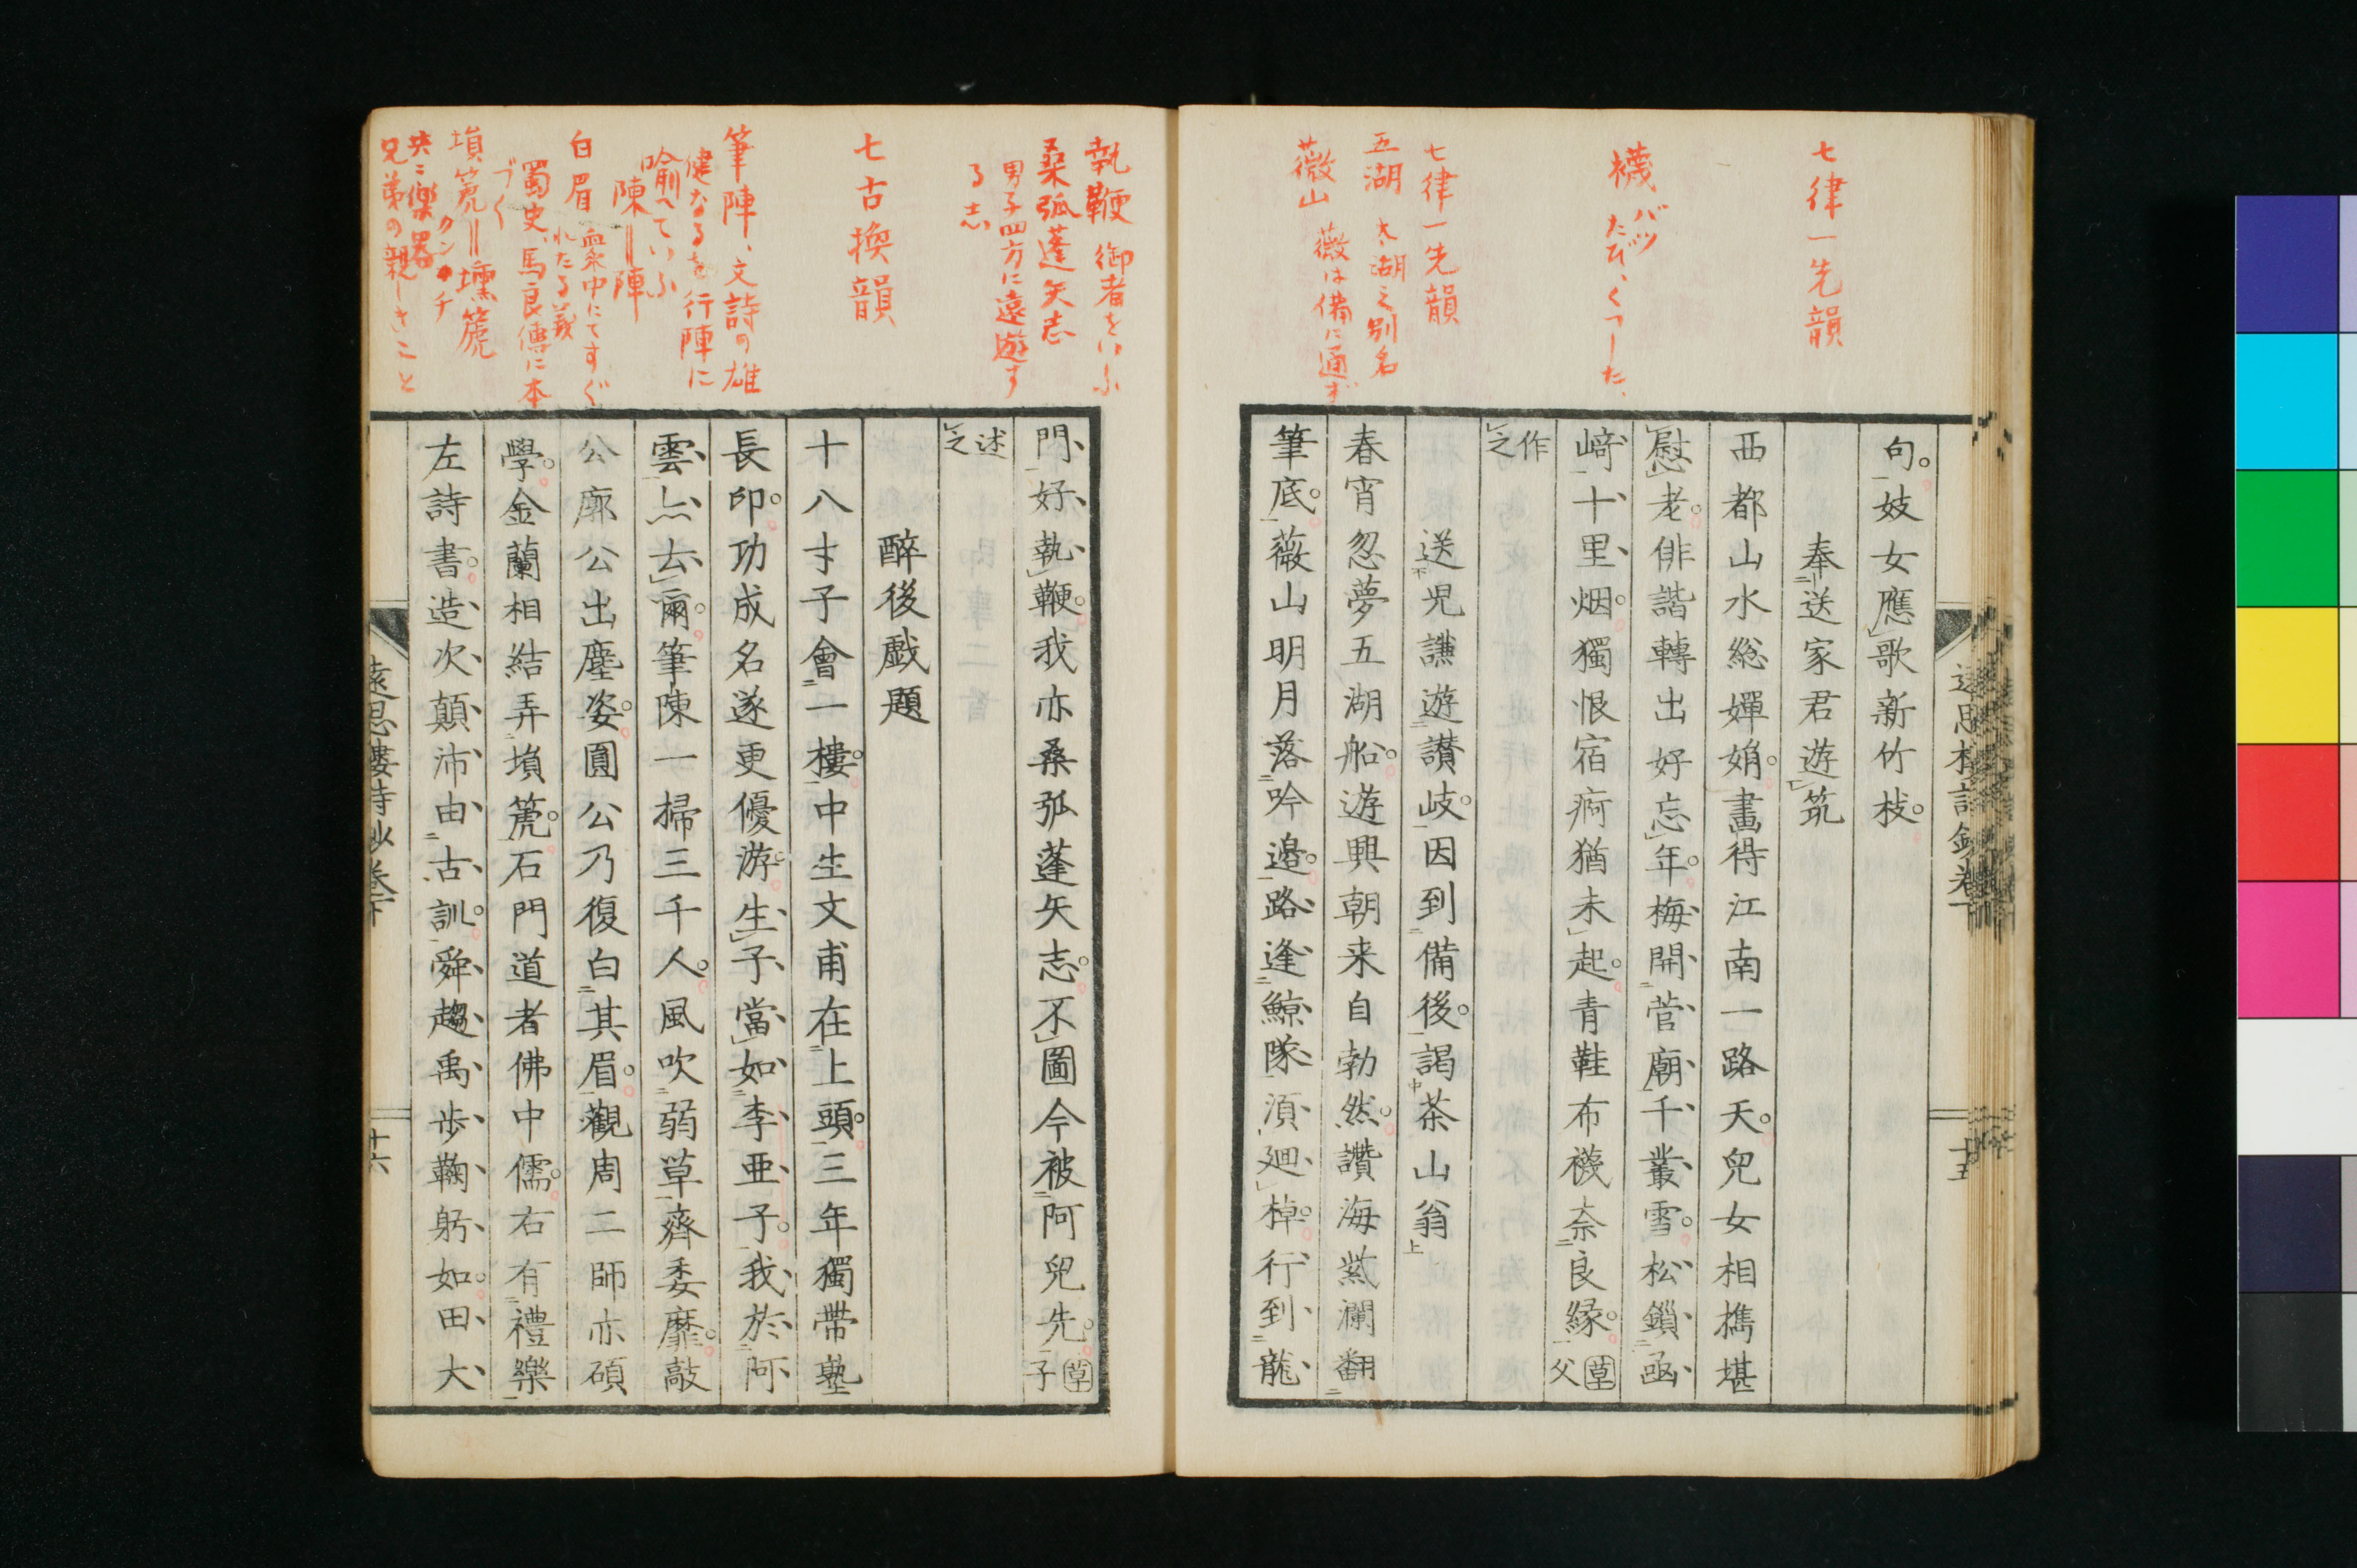 七律一先韻
襪
バツ
たび、くつした、
七律一先韻
五湖 太湖之別名
薇山 薇は備に通ず
句妓女應歌新竹枝
奉送家君遊筑
西都山水総嬋娟畫得江南一路天兒女相擕堪
慰老俳諧轉出好忘年梅開菅廟千叢雪松鎖函
﨑十里烟獨恨宿痾猶未起青鞋布襪奈良縁 草父
作之
送児謙遊讃岐因到備後謁茶山翁
春宵忽夢五湖船遊興朝来自勃然讚海嵐瀾翻
筆底薇山明月落吟邉路逢鯨隊湏廻棹行到龍
遠思樓詩鈔卷下
十五
執鞭 御者をいふ
桑弧蓬矢志
男子四方に遠遊す
る志
七古換韻
筆陣、文詩の雄
健なるを行陣に
喩へていふ
陳=陣
白眉 衆中にてすぐ
れたる義
蜀史、馬良傳に本
づく
塤箎=壎篪
クンチ
共ニ樂器
兄弟の親しきこと
門好執鞭我亦桑弧蓬矢志不圖今被阿兒先 草子
述之
醉後戯題
十八才子會一樓中生文甫在上頭三年獨帶塾
長印功成名遂更優游生子當如李亜子我於阿
雲亦去爾筆陳一掃三千人風吹弱草齊委靡敲
公廓公出塵姿圓公乃復白其眉觀周二師亦碩
學金蘭相結弄塤箎石門道者佛中儒右有禮樂
左詩書造次顛沛由古訓舜趨禹歩鞠躬如田大
遠思樓詩鈔卷下
十六